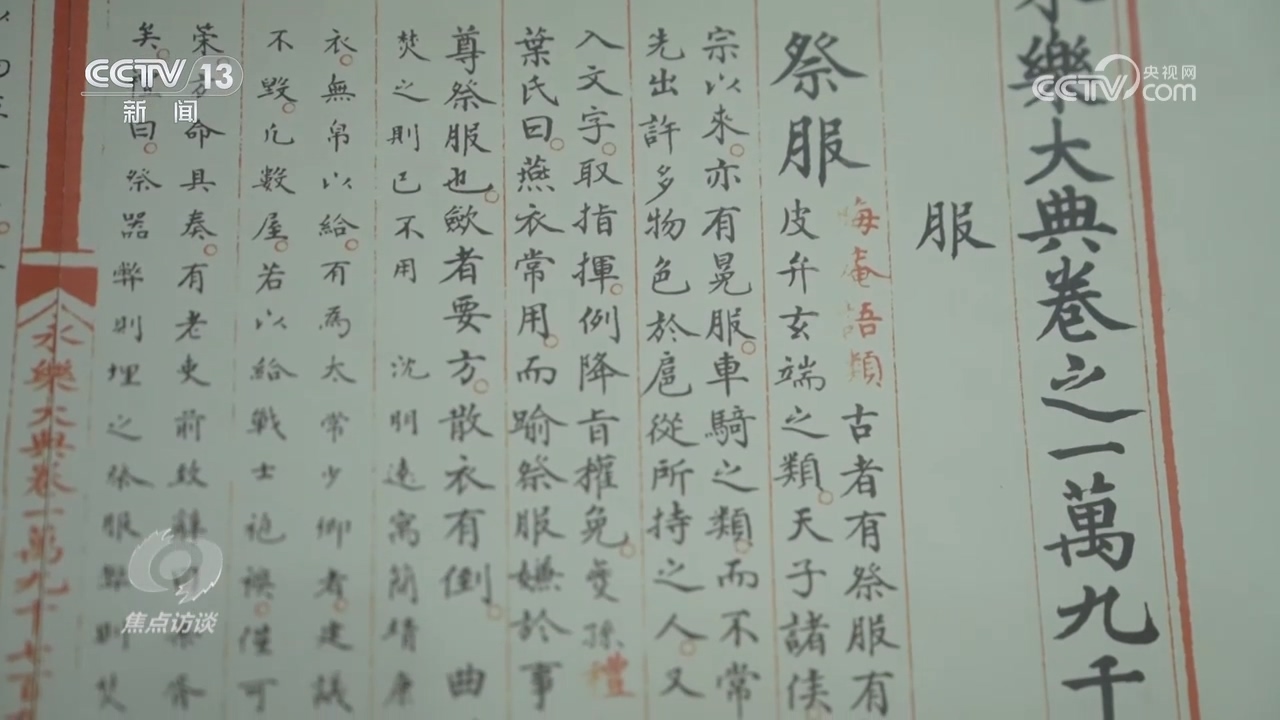 CCTV 13
新闻
央视网
CCTV com
永樂大典卷之一萬九千
服
祭服
晦庵語類 古者有祭服有
皮弁玄端之類天子諸侯
宗以來亦有冕服車騎之類而不常
先出許多物色於扈從所持之人又
入文字取指揮例降旨權免 禮
葉氏曰燕衣常用而踰祭服嫌於事
尊祭服也斂者要方散衣有倒 曲
焚之則已不用 沈明遠寓簡靖康
衣無帛以給有為太常少卿者建議
不毀凡數屋若以給戰士袍襖僅可
命具奏有老吏前致
矣 曰祭器弊則埋之祭服弊則焚
永樂大典卷一萬九千七百
焦点访谈